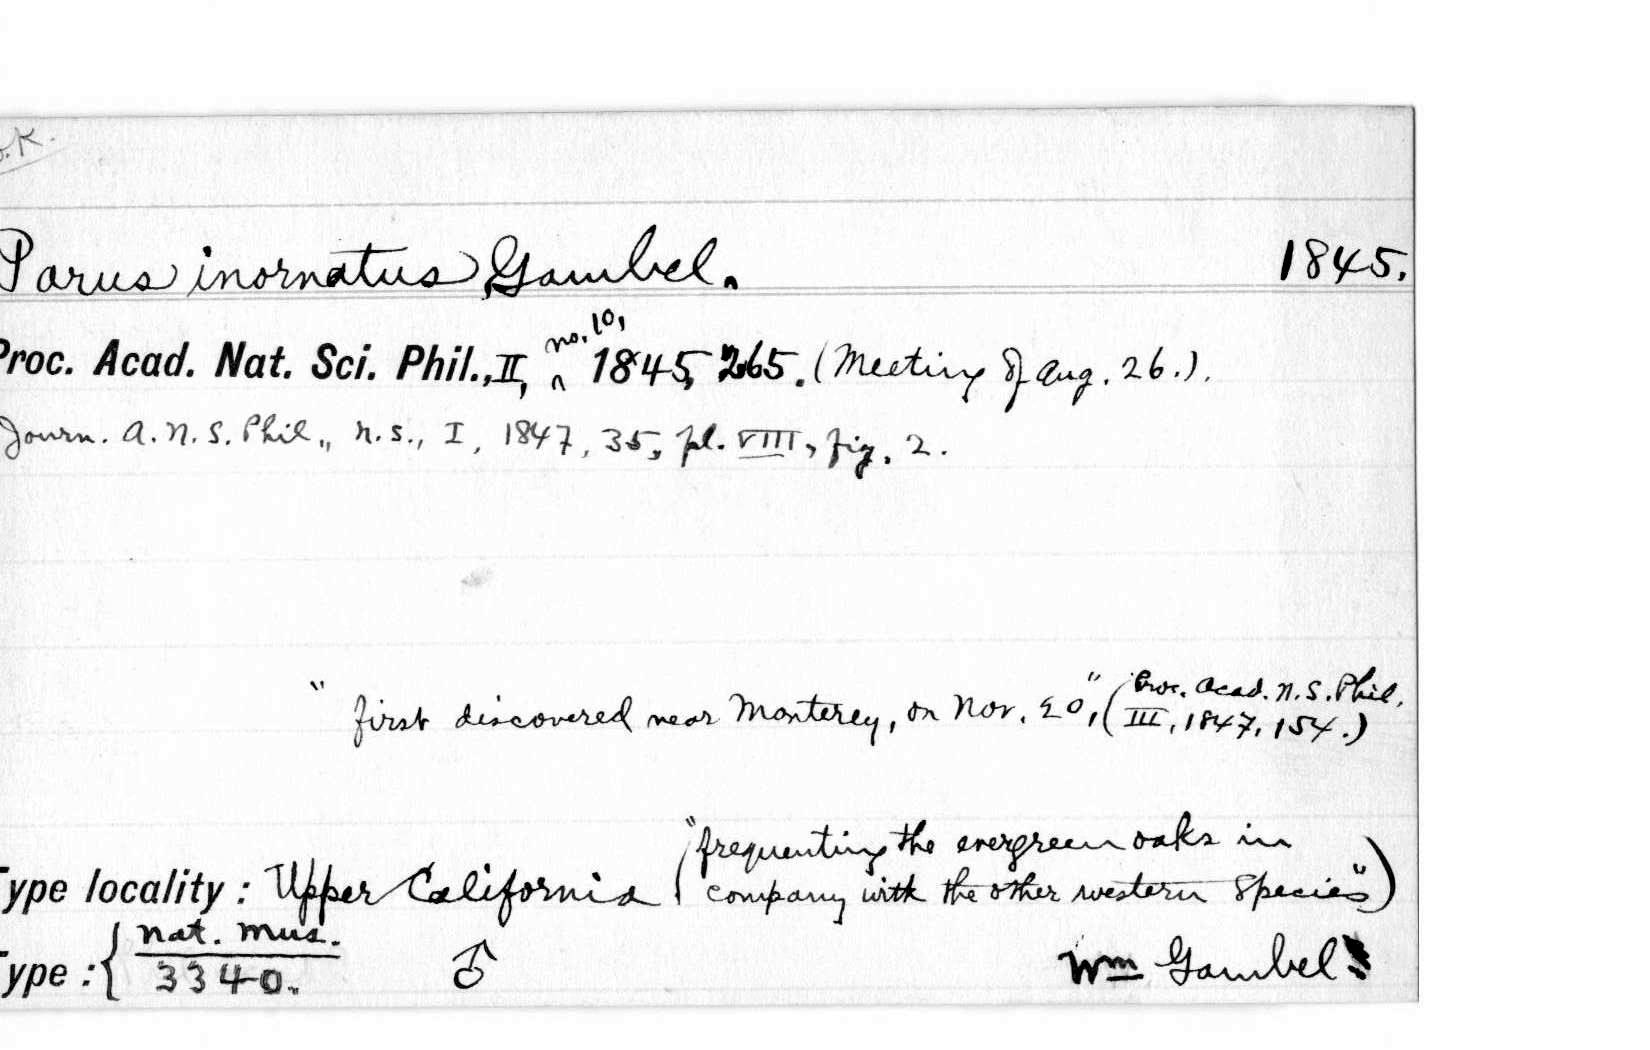 o.K.
Parus inornatus Gambel. 1845.
Proc. Acad. Nat. Sci. Phil., II, no. 10, 1845, 265. (Meeting of Aug. 26.).
Journ. A. N. S. Phil., n.s., I, 1847, 35, pl. VIII, fig. 2.
"first discovered near Monterey, on Nov. 20", (Proc. Acad. N. S. Phil.
III, 1847, 154.)
("frequenting the evergreen oaks in
Type locality: Upper California company with the other western species")
Type: { Nat. Mus.
3340. ♂ Wm Gambel